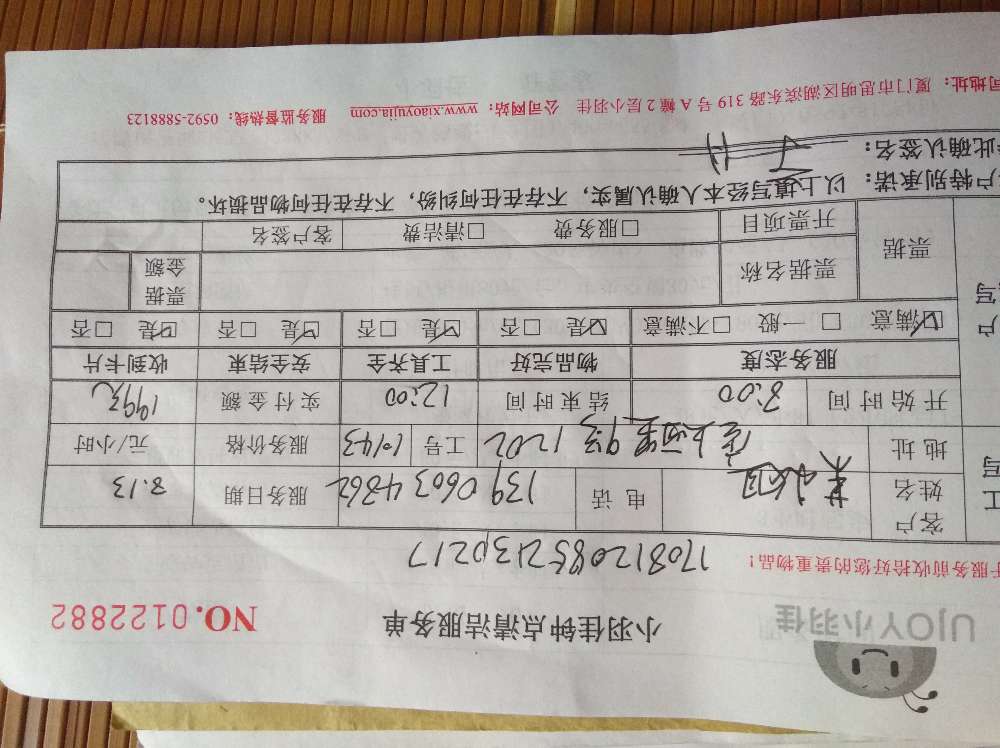 UJOY小羽佳
小羽佳钟点清洁服务单 NO.0122882
服务前收拾好您的贵重物品! 1708120852130217
客户姓名 电话 139 0603 4362 服务日期 8.13
地址 9号 1202 工号 10143 服务价格 元/小时
开始时间 8:00 结束时间 12:00 实付金额 199元
服务态度 物品完好 工具齐全 安全结束 收到卡片
☑满意 □一般 □不满意 ☑是 □否 ☑是 □否 ☑是 □否 ☑是 □否
票据 票据名称 票据金额
开票项目 □服务费 □清洁费 客户签名
户特别承诺:以上填写经本人确认属实,不存在任何纠纷,不存在任何物品损坏。
此确认签名:
司地址:厦门市思明区湖滨东路 319 号 A 幢 2 层小羽佳 公司网站:www.xiaoyujia.com 服务监督热线:0592-5888123